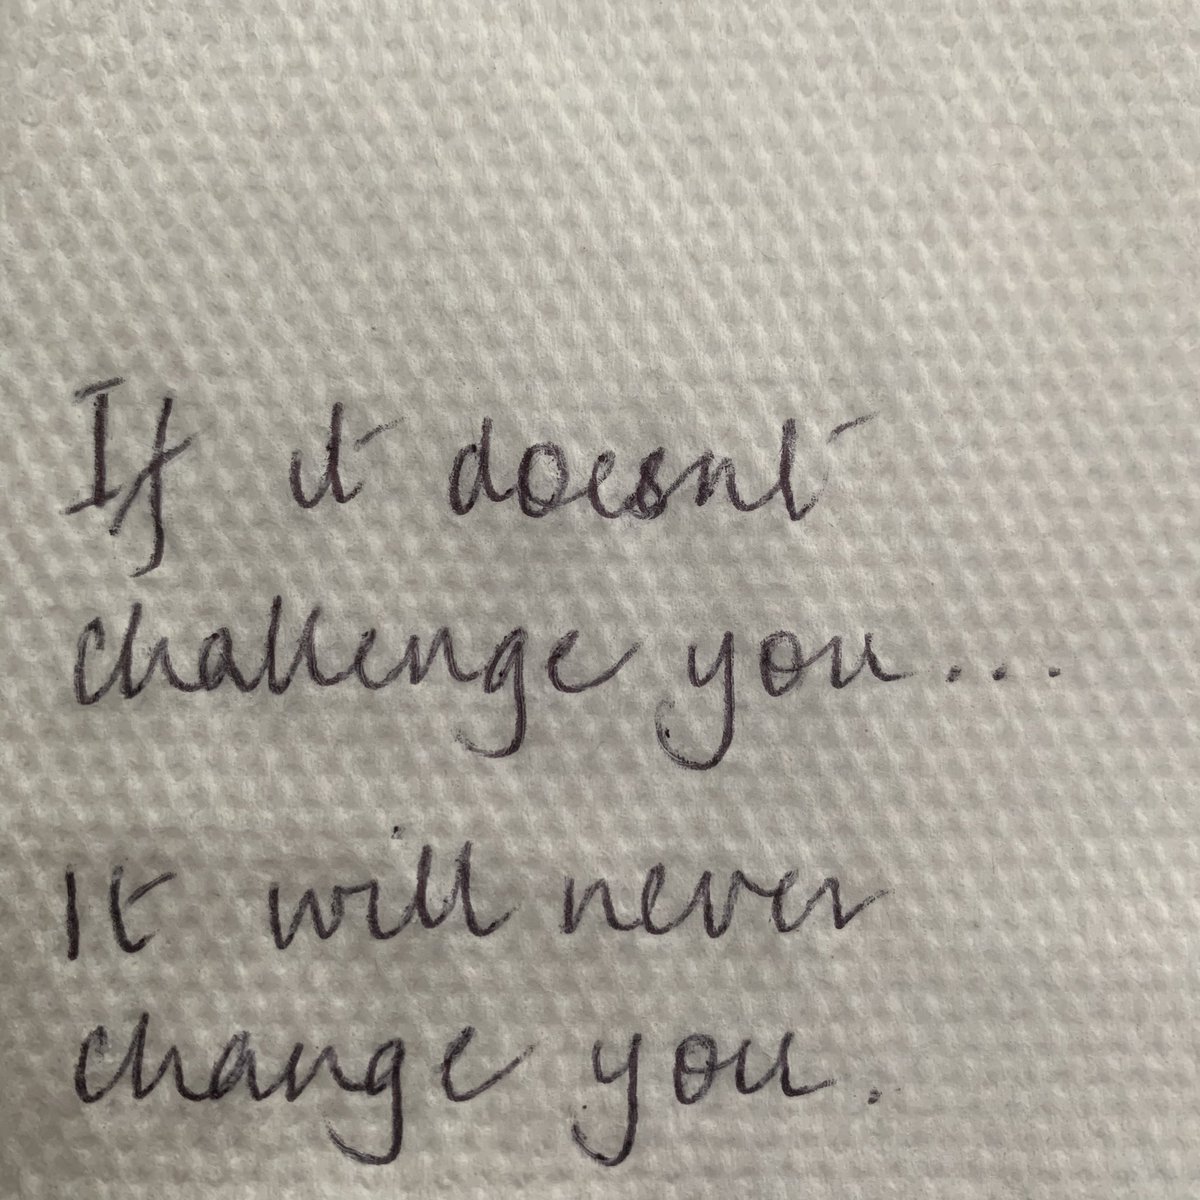 If it doesnt
challenge you...
It will never
change you.